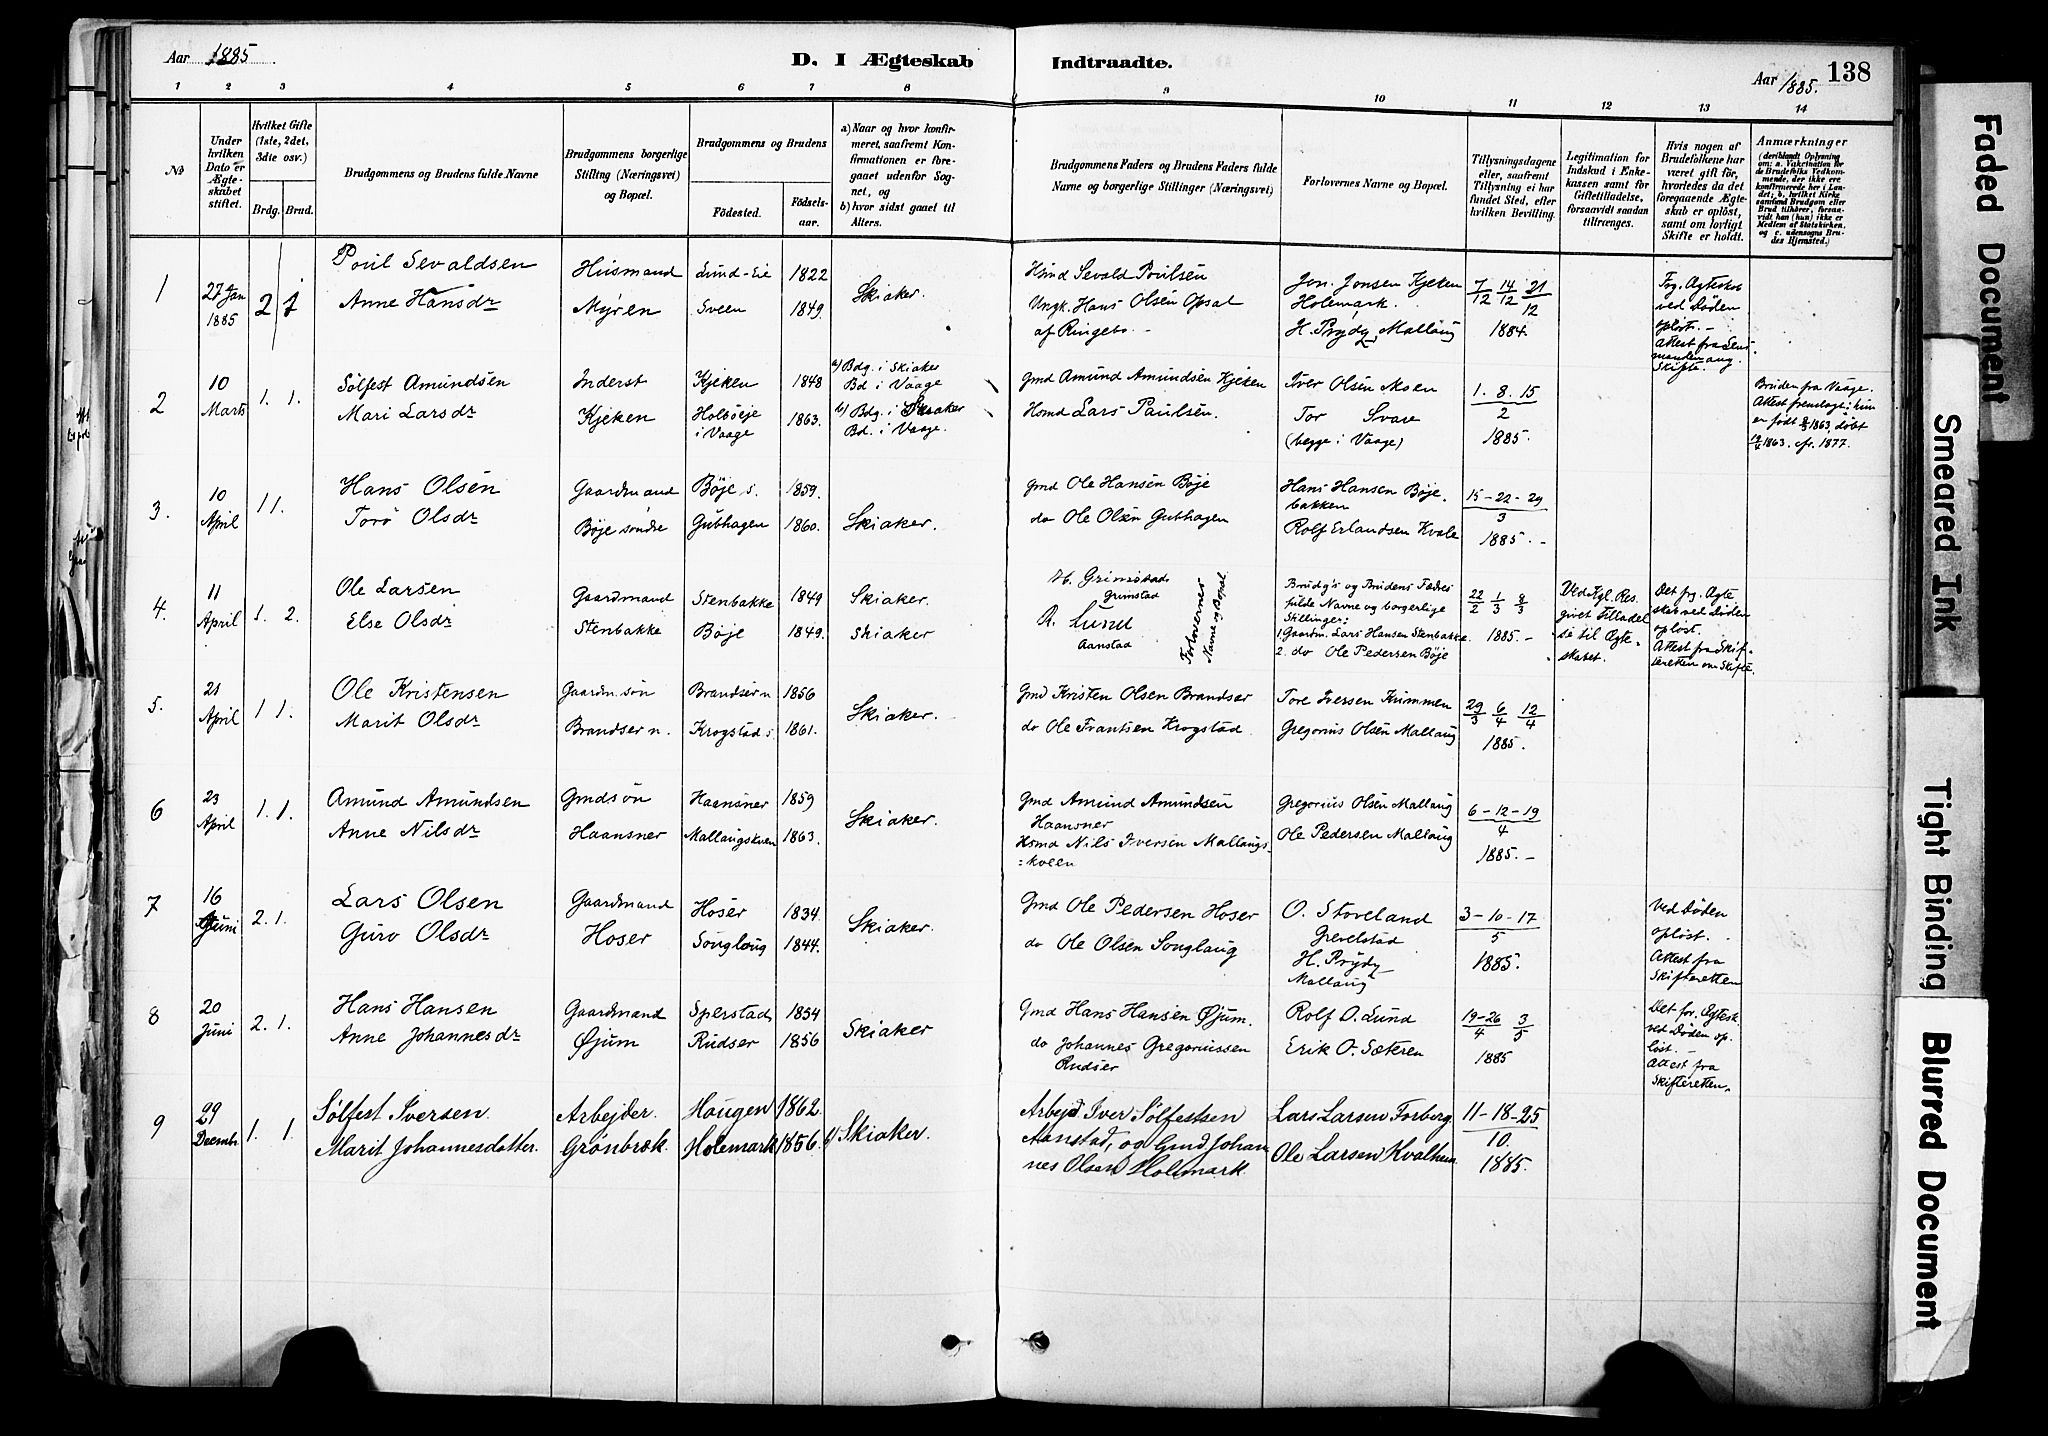 Aar 1885
D. I Ægteskab
Indtraadte.
Aar 1885.
138
1 2 3 4 5 6 7 8 9 10 11 12 13 14
No
Under hvilken Dato er Ægteskabet stiftet.
Hvilket Gifte (1ste, 2det, 3die osv.)
Brdg. Brud.
Brudgommens og Brudens fulde Navne
Brudgommens borgerlige Stilling (Næringsvei) og Bopæl.
Brudgommens og Brudens
Fødested.
Fødsels-aar.
a) Naar og hvor konfirmeret, saafremt Konfirmationen er foregaaet udenfor Sognet, og
b) hvor sidst gaaet til Alters.
Brudgommens Faders og Brudens Faders fulde Navne og borgerlige Stillinger (Næringsvei)
Forlovernes Navne og Bopæl.
Tillysningsdagene eller, saafremt Tillysning ei har fundet Sted, efter hvilken Bevilling.
Legitimation for Indskud i Enkekassen samt for Giftetilladelse, forsaavidt saadan tiltrænges.
Hvis nogen af Brudefolkene har været gift før, hvorledes da det foregaaende Ægteskab er opløst, samt om lovligt Skifte er holdt.
Anmærkninger
1
27de Jan 1885
2 1
Poul Sevaldsen
Anne Hansdr
Husmand
Myren
Lund-Eie 1822
Sveen 1849.
Skiaker.
Hsmd Sevald Poulsen
Ungk. Hans Olsen Opsal
af Ringebo -
Jon. Jonsen Kjeken
Holemark.
H. Prydz, Mallaug
7/12 14/12 21/12
1884.
Fog. Ægteskab
ved Døden
opløst. -
Attest fra Lens-
manden ang.
Skifte.
2
10 Marts
1. 1.
Sølfest Amundsen
Mari Larsdr
Inderst
Kjeken
Kjeken 1848
Holbøeje i Vaage 1863.
a) Bdg. i Skiaker
Bd i Vaage
b) Bdg. i Skiaker
Bd. i Vaage.
Gmd Amund Amundsen Kjeken
Hsmd Lars Paulsen.
Iver Olsen Moen
Tor Svare
(begge i Vaage)
1. 8. 15
2
1885.
Bruden fra Vaage.
Attest fremlagt: hun
er født 1863, døbt
1863. cfr. 1877.
3.
10 April
1 1.
Hans Olsen
Torø Olsdr
Gaardmand
Bøje søndre
Bøje s. 1859.
Gubhagen 1860.
Skiaker.
Gmd Ole Hansen Bøje
do Ole Olsen Gubhagen
Hans Hansen Bøje-
bakken
Rolf Erlandsen Kvale
15-22-29
3
1885. -
4.
11 April
1. 2.
Ole Larsen
Else Olsdr
Gaardmand
Stenbakke
Stenbakke 1849
Bøje 1849.
Skiaker.
Skiaker
H. Grimstad
Grimstad
R. Lund
Aanstad
Forlovernes
Navne og Bopæl
Brudg's og Brudens Fædres
fulde Navne og borgerlige
Stillinger:
1. Gaardm. Lars Hansen Stenbakke.
2. do Ole Pedersen Bøje
22/2 1/3 8/3
1885. -
Ved Kgl. Res.
givet Tilladel
se til Ægte-
skabet.
Det fg. Ægte
skab ved Døden
opløst.
Attest fra Skif-
teretten om Skifte.
5.
21 April
1 1.
Ole Kristensen
Marit Olsdr
Gaardm. søn
Brandser n.
Brandser n 1856
Krogstad s. 1861.
Skiaker.
Gmd Kristen Olsen Brandser
do Ole Frantsen Krogstad
Tore Iversen Krummen
Gregorius Olsen Mallaug
29/3 6/4 12/4
1885.
6
23 April
1. 1.
Amund Amundsen
Anne Nilsdr
Gmdsøn
Haansner
Haansner 1859
Mallaugskveen 1863.
Skiaker.
Gmd Amund Amundsen
Haansner
Hsmd Nils Iversen Mallaugs-
kveen
Gregorius Olsen Mallaug
Ole Pedersen Mallaug
6-12-19
4
1885. -
7
16 Juni
2. 1.
Lars Olsen
Guro Olsdr
Gaardmand
Hoser
Hoser 1834
Songlaug 1844.
Skiaker.
Gmd Ole Pedersen Hoser
do Ole Olsen Songlaug
O. Storeland
Grevelstad
H. Prydz
Mallaug
3-10-17
5
1885.
Ved Døden
opløst.
Attest fra
Skifteretten
8
20 Juni
2. 1.
Hans Hansen
Anne Johannesdr
Gaardmand
Øjum
Sperstad 1834
Rudser 1856
Skiaker
Gmd Hans Hansen Øjum.
do Johannes Gregoriussen
Rudser
Rolf O. Lund
Erik O. Sætren
19-26/4 3/5
1885
Det for. Ægtesk.
ved Døden op-
løst. -
Attest fra
Skifteretten.
9
29 Decembr
1. 1.
Sølfest Iversen.
Marit Johannesdatter.
Arbejder.
Grønbræk.
Haugen 1862.
Holemark 1856.
b) Skiaker.
Arbejd Iver Sølfestsen
Aanstad, og Gmd Johan
nes Olsen Holemark.
Lars Larsen Forberg.
Ole Larsen Kvalheim
11-18-25
10.
1885.
Faded Document
Smeared Ink
Tight Binding
Blurred Document